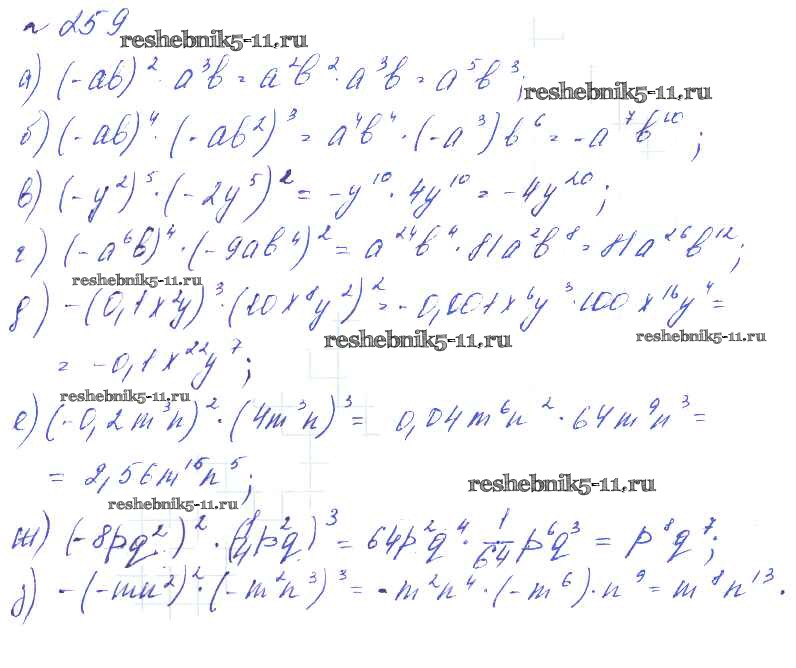 № 259
reshebnik5-11.ru
а) (-ab)² · a³b = a²b² · a³b = a⁵b³;
reshebnik5-11.ru
б) (-ab)⁴ · (-ab²)³ = a⁴b⁴ · (-a³)b⁶ = -a⁷b¹⁰;
в) (-y²)⁵ · (-2y⁵)² = -y¹⁰ · 4y¹⁰ = -4y²⁰;
г) (-a⁶b)⁴ · (-9ab⁴)² = a²⁴b⁴ · 81a²b⁸ = 81a²⁶b¹²;
reshebnik5-11.ru
д) -(0,1x²y)³ · (10x⁸y²)² = -0,001x⁶y³ · 100x¹⁶y⁴ =
reshebnik5-11.ru
reshebnik5-11.ru
= -0,1x²²y⁷;
reshebnik5-11.ru
е) (-0,2m³n)² · (4m³n)³ = 0,04m⁶n² · 64m⁹n³ =
= 2,56m¹⁵n⁵;
reshebnik5-11.ru
reshebnik5-11.ru
ж) (-8pq²)² · (1/4p²q)³ = 64p²q⁴ · 1/64 p⁶q³ = p⁸q⁷;
з) -(-mn²)² · (-m²n³)³ = -m²n⁴ · (-m⁶) · n⁹ = m⁸n¹³.